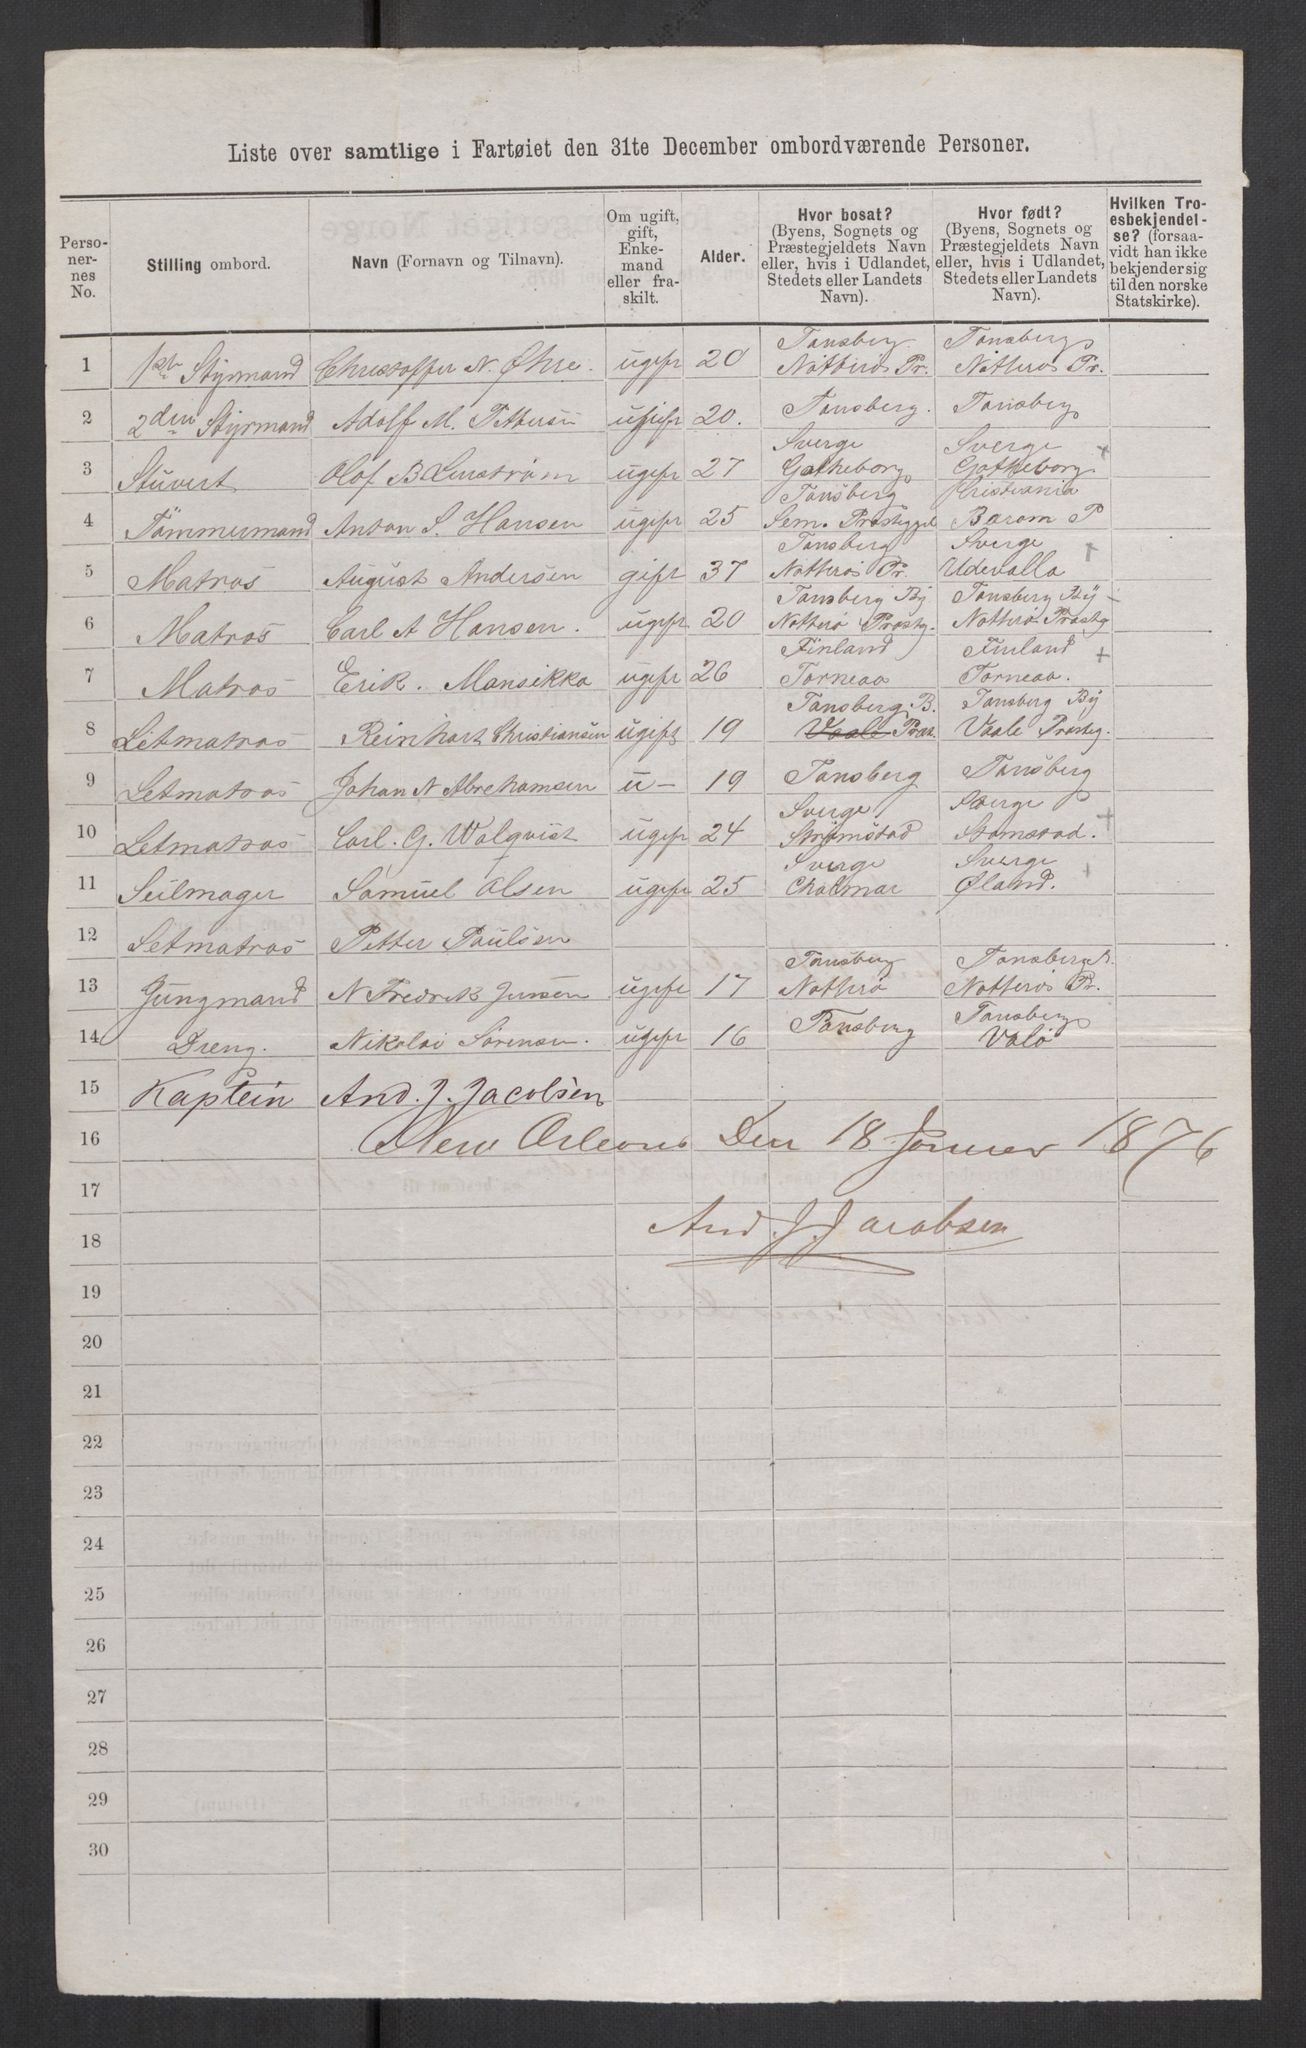 Liste over samtlige i Fartøiet den 31te December ombordværende Personer.
Personernes No. | Stilling ombord. | Navn (Fornavn og Tilnavn). | Om ugift, gift, Enkemand eller fraskilt. | Alder. | Hvor bosat? (Byens, Sognets og Præstegjeldets Navn eller, hvis i Udlandet, Stedets eller Landets Navn). | Hvor født? (Byens, Sognets og Præstegjeldets Navn eller, hvis i Udlandet, Stedets eller Landets Navn). | Hvilken Troesbekjendelse? (forsaavidt han ikke bekjender sig til den norske Statskirke).
1 | Styrmand | Christoffer N. Øhre. | ugift | 20 | Tønsberg Nötterös Pr. | Tønsberg Nötterös Pr.
2 | 2den Styrmand | Adolf M. Pettersen | ugift | 20. | Tønsberg. | Tønsberg
3 | Stuvert | Olof B | ugift | 27 | Sverge Gøtheborg | Sverge Gøtheborg +
4 | Tömmermand | Anton S. Hansen | ugift | 25 | Tønsberg Sem. | Kristiania Bærom P
5 | Matros | August Andersen | gift | 37 | Tønsberg Nøtterøs Pr. | Sverge Udevalla +
6 | Matros | Carl A Hansen. | ugift | 20 | Tønsberg By Nøtterø Præstg. | Tønsberg By Nøtterø Præstg
7 | Matros | Erik. Mansikka | ugift | 26 | Finland Torneaa | Finland Torneaa. +
8 | Letmatros | Reinhart Christiansen | ugift | 19 | Tønsberg B. Vaale Præs. | Tønsberg By Vaale Præsteg.
9 | Letmatros | Johan N Abrehamsen | u— | 19 | Tønsberg | Tønsberg
10 | Letmatros | Carl. G. Walqvist | ugift | 24 | Sverge Strömstad | Sverge Stømstad. +
11 | Seilmager | Samuel Olsen | ugift | 25 | Sverge Chalmar | Sverge Øland. +
12 | Letmatros | Petter Paulsen
13 | Jungmand | N Fredrik Jensen | ugift | 17 | Tønsberg Nøtterø | Tønsberg Nøtterøs Pr.
14 | Dreng. | Nikolai Sörensen. | ugift | 16 | Tønsberg | Tønsberg Valö
15 | Kaptein | And. J. Jacobsen
16 | New Orleans Den 18 Januer 1876
17
18 | And. J. Jacobsen
19
20
21
22
23
24
25
26
27
28
29
30